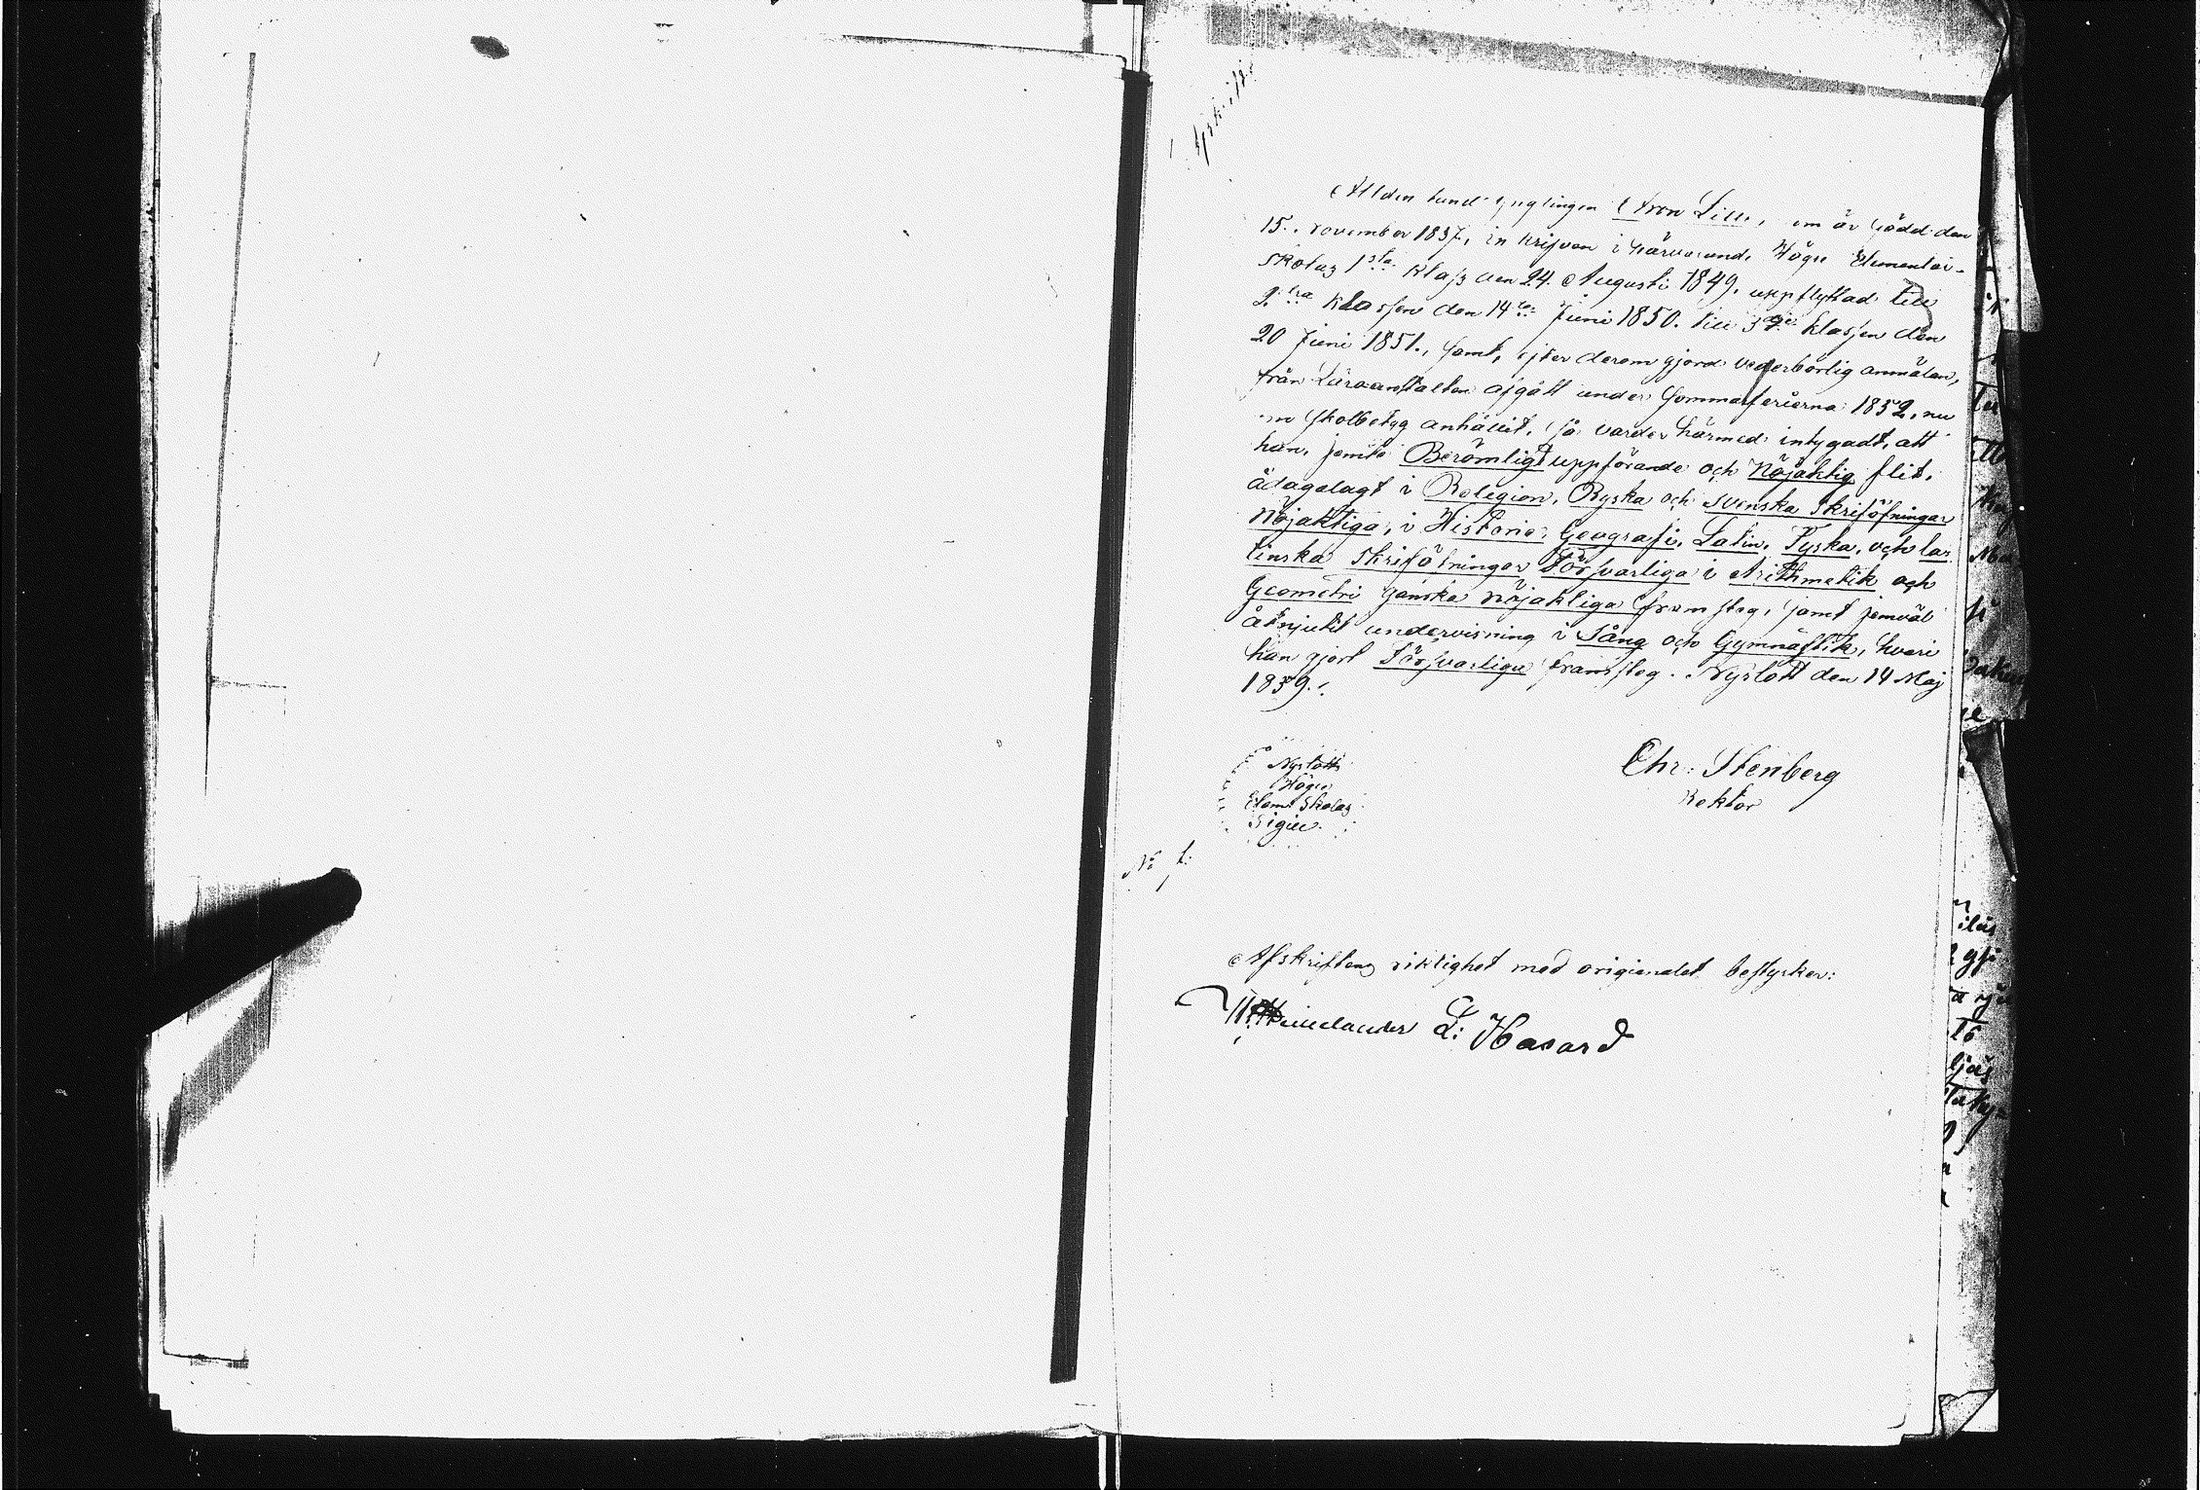 Afskrift.
Alldenstund ynglingen Aron Lille, som är född den
15. november 1837, inskrifven i härvarande Högre Elementar-
skolas 1sta klass den 24. Augusti 1849, uppflyttad till
2dra klassen den 14de Juni 1850, till 3dje klassen den
20 Juni 1851., samt, efter derom gjord vederbörlig anmälan,
från Läroanstalten afgått under sommarferierna 1852, nu
om skolbetyg anhållit, så varder härmed intygadt, att
han, jemte Berömligt uppförande och Nöjaktig flit,
ådagalagt i Religion, Ryska och Svenska Skriföfningar
Nöjaktiga, i Historie, Geografi, Latin, Tyska, och la-
tinska Skriföfningar Försvarliga i Arithmetik och
Geometri ganska nöjaktiga framsteg, samt jemväl
åtnjutit undervisning i Sång och Gymnastik, hvari
han gjort Försvarliga framsteg. Nyslott den 14 Maj
1859.
Nyslotts
Högre
Elem: Skolas
Sigill.
Chr: Stenberg
Rektor
No 1:
Afskriftens riktighet med originalet bestyrker:
L: Hasard